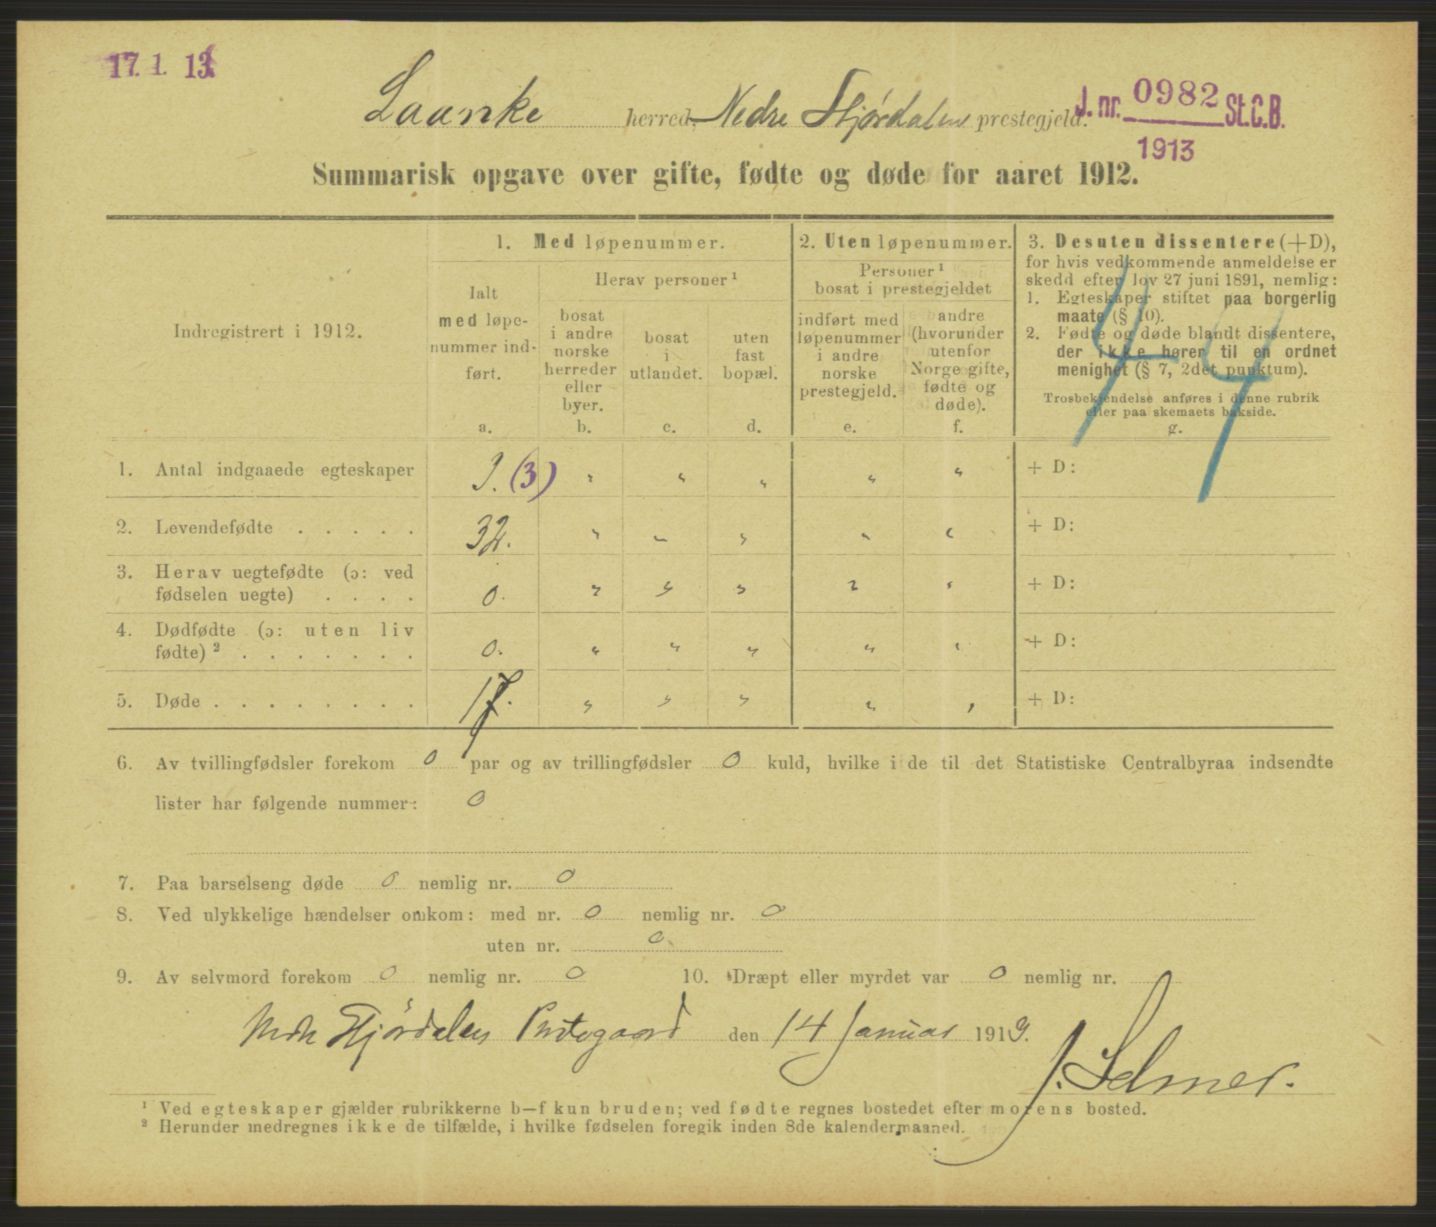 17. 1. 13
J. nr. 0982 St.C.B.
1913
Laanke herred, Nedre Stjørdalens prestegjeld.
Summarisk opgave over gifte, fødte og døde for aaret 1912.
44
Indregistrert i 1912.
1. Med løpenummer.
Ialt med løpenummer indført.
a.
Herav personer ¹
bosat i andre norske herreder eller byer.
b.
bosat i utlandet.
c.
uten fast bopæl.
d.
2. Uten løpenummer.
Personer ¹ bosat i prestegjeldet
indført med løpenummer i andre norske prestegjeld.
e.
andre (hvorunder utenfor Norge gifte, fødte og døde).
f.
3. Desuten dissentere (+D),
for hvis vedkommende anmeldelse er
skedd efter lov 27 juni 1891, nemlig:
1. Egteskaper stiftet paa borgerlig
maate (§ 10).
2. Fødte og døde blandt dissentere,
der ikke hører til en ordnet
menighet (§ 7, 2det punktum).
Trosbekjendelse anføres i denne rubrik
eller paa skemaets bakside.
g.
1. Antal indgaaede egteskaper 3. (3) " " " " " + D:
2. Levendefødte . . . . . 32. " " " " " + D:
3. Herav uegtefødte (ɔ: ved
fødselen uegte) . . . . 0. " " " " " + D:
4. Dødfødte (ɔ: uten liv
fødte) ² . . . . . . . 0. " " " " " + D:
5. Døde . . . . . . . . 17. " " " " " + D:
6. Av tvillingfødsler forekom 0 par og av trillingfødsler 0 kuld, hvilke i de til det Statistiske Centralbyraa indsendte
lister har følgende nummer: 0
7. Paa barselseng døde 0 nemlig nr. 0
8. Ved ulykkelige hændelser omkom: med nr. 0 nemlig nr. 0
uten nr. 0
9. Av selvmord forekom 0 nemlig nr. 0 10. Dræpt eller myrdet var 0 nemlig nr.
Stjørdalens den 14 Januar 1913.
J. Selmer.
¹ Ved egteskaper gjælder rubrikkerne b—f kun bruden; ved fødte regnes bostedet efter morens bosted.
² Herunder medregnes ikke de tilfælde, i hvilke fødselen foregik inden 8de kalendermaaned.